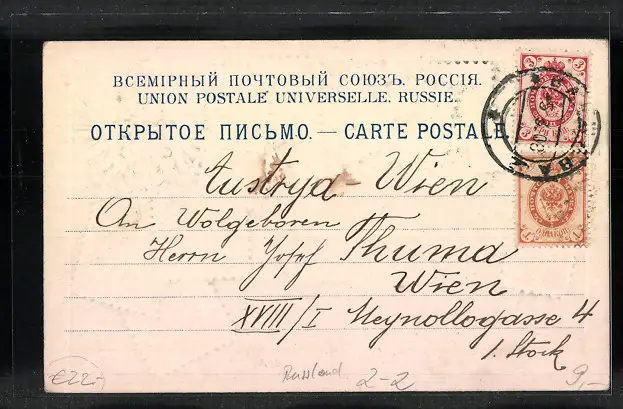 ВСЕМІРНЫЙ ПОЧТОВЫЙ СОЮЗЪ. РОССІЯ.
UNION POSTALE UNIVERSELLE. RUSSIE.
ОТКРЫТОЕ ПИСЬМО. — CARTE POSTALE
3 3
3
1 1
Austrya - Wien
An Wolgeboren
Herrn Josef Thuma
Wien
XVIII/I Meynollogasse 4
1. Stock
€22.-
Russland
2-2
9,-